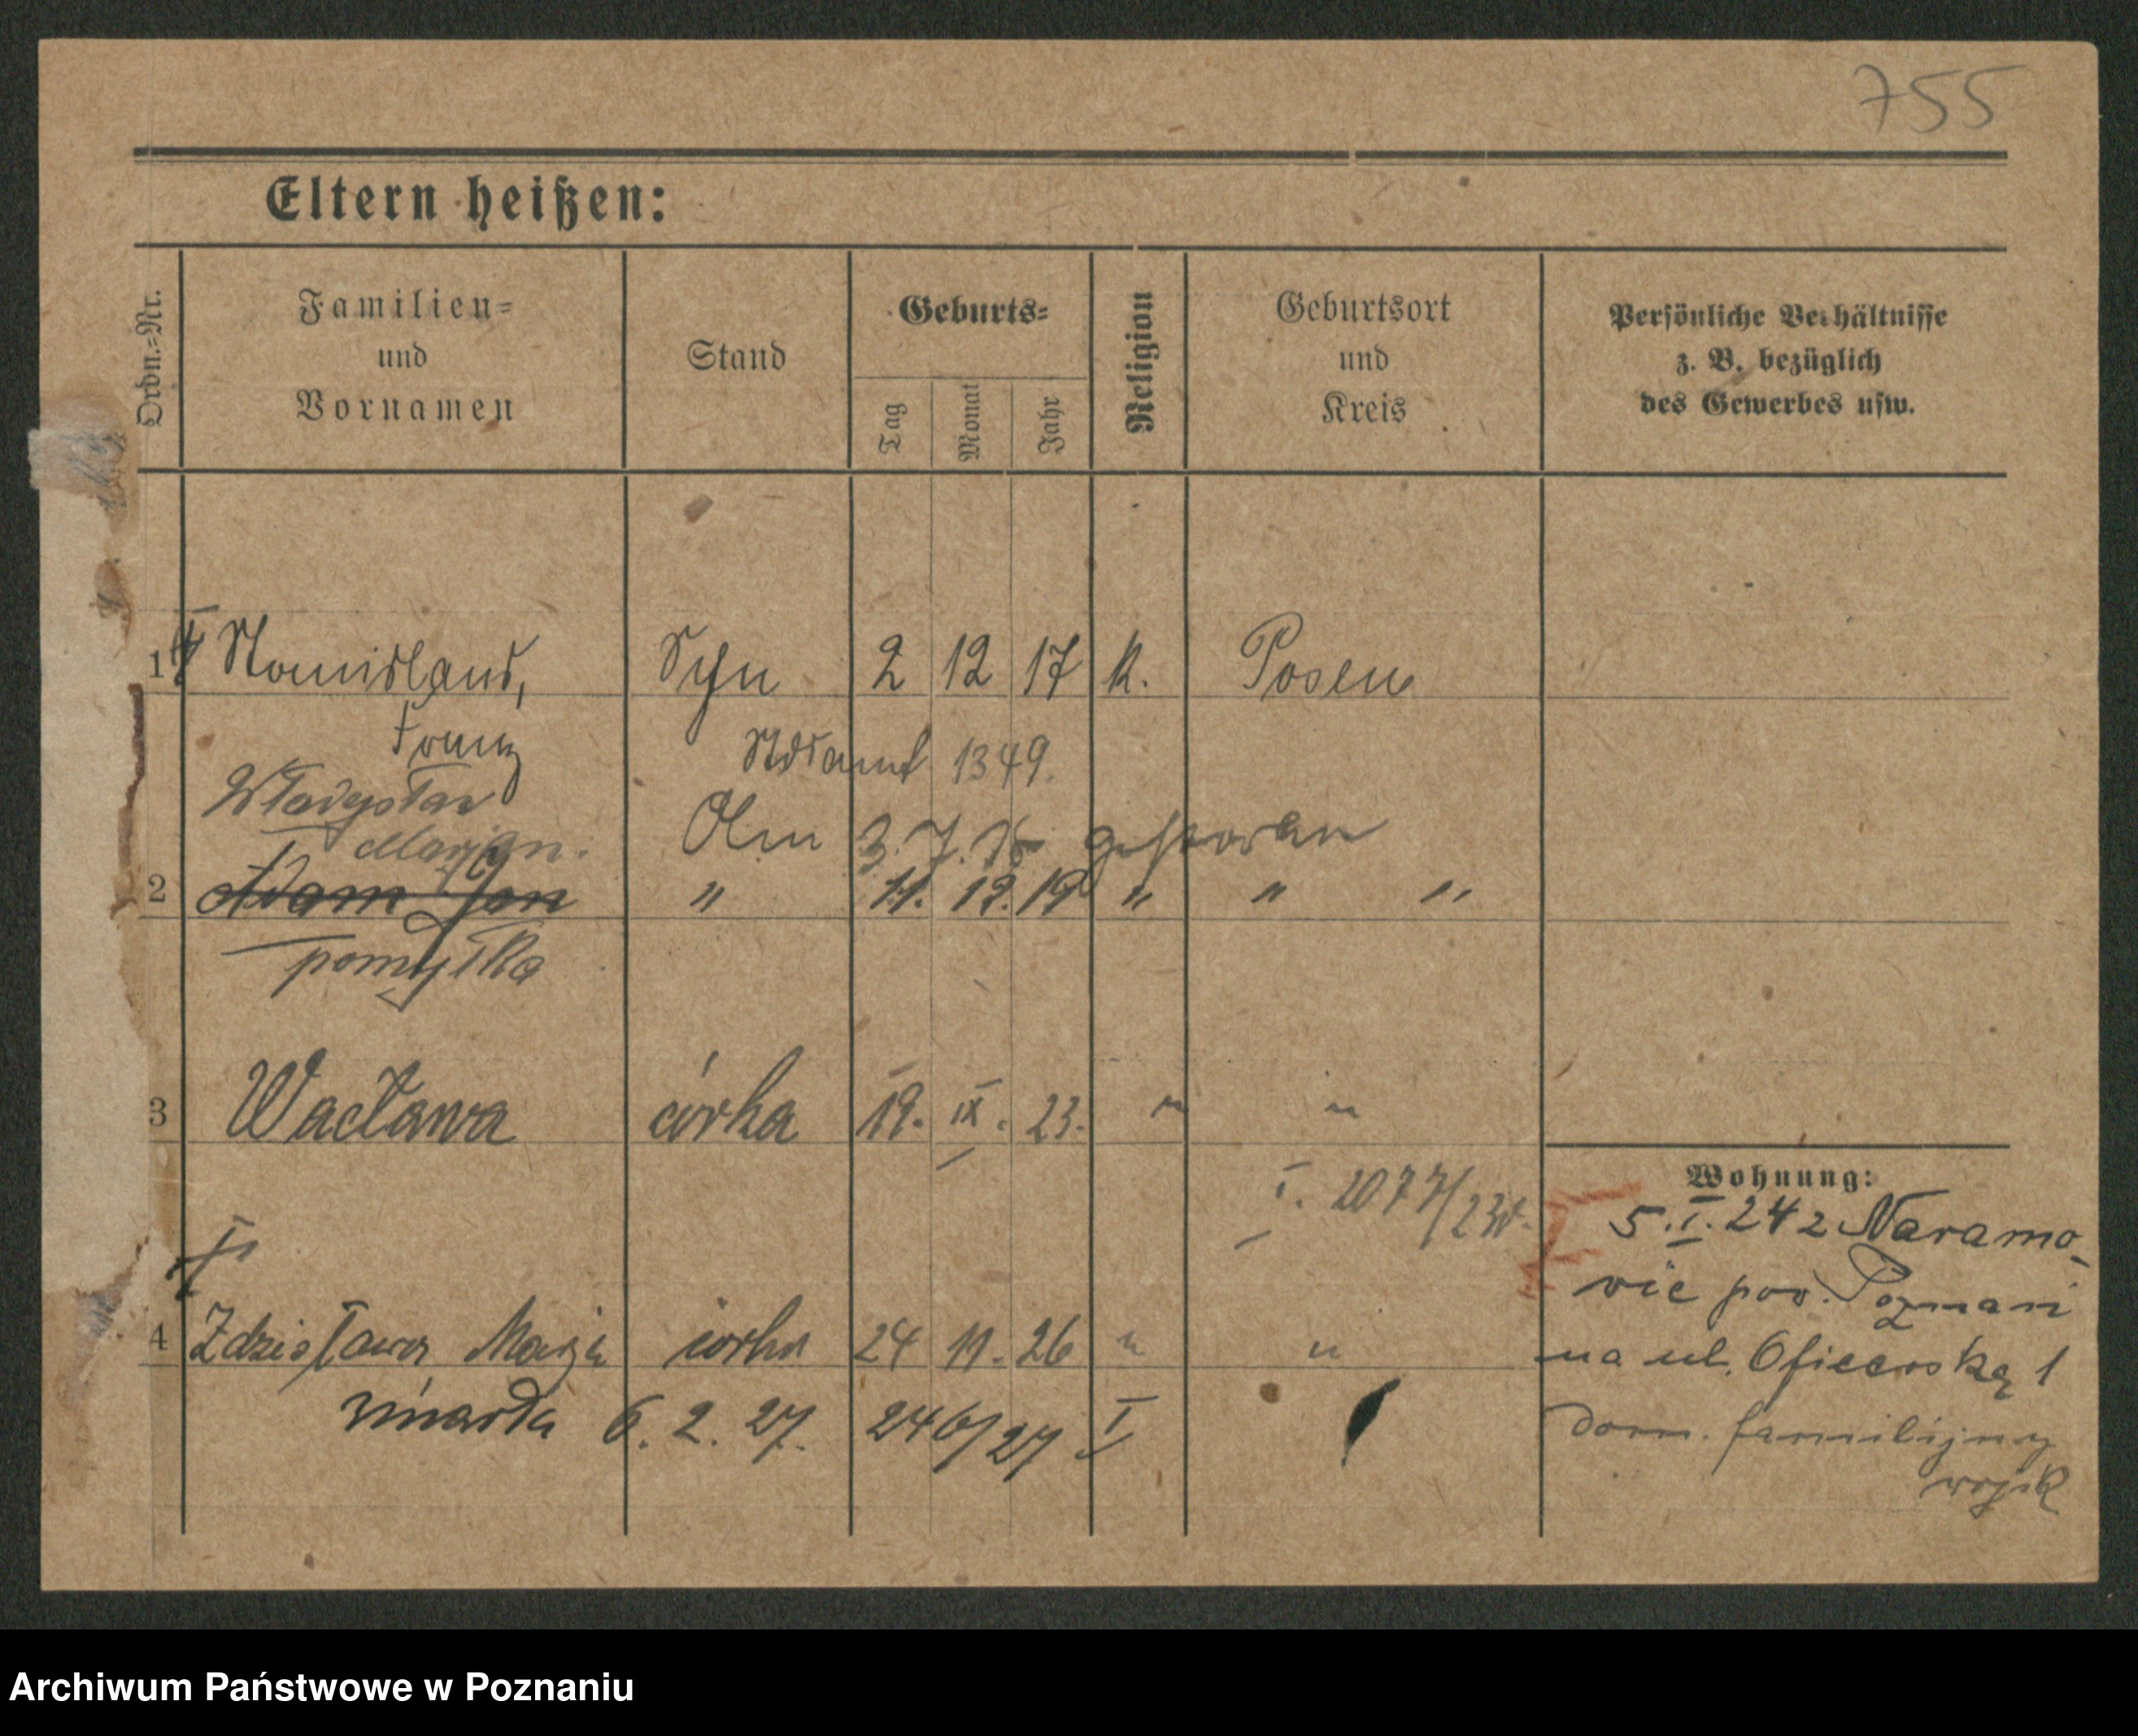 755
Eltern heißen:
Ordn.-Nr.
Familien- und Vornamen
Stand
Geburts-
Tag
Monat
Jahr
Religion
Geburtsort und Kreis
Persönliche Verhältnisse z. B. bezüglich des Gewerbes usw.
1 Stanislaus, Syn 2 12 17 K. Posen
Franz
Stdsamt 1349.
Władysław
Am 3. 7. 18 gestorben
Marjan.
2 Adam Jan " 11. 12. 19 " " "
pomyłka
3 Wacława córka 19. IX. 23. " "
I. 2077/23
Wohnung:
5.I.24 z Naramo-
wic pow. Poznań
4 Zdzisława Marja córka 24 11. 26 " "
na ul. Oficerską 1
zmarła 6. 2. 27. 246/27 I
dom. familijny
wojsk
Archiwum Państwowe w Poznaniu